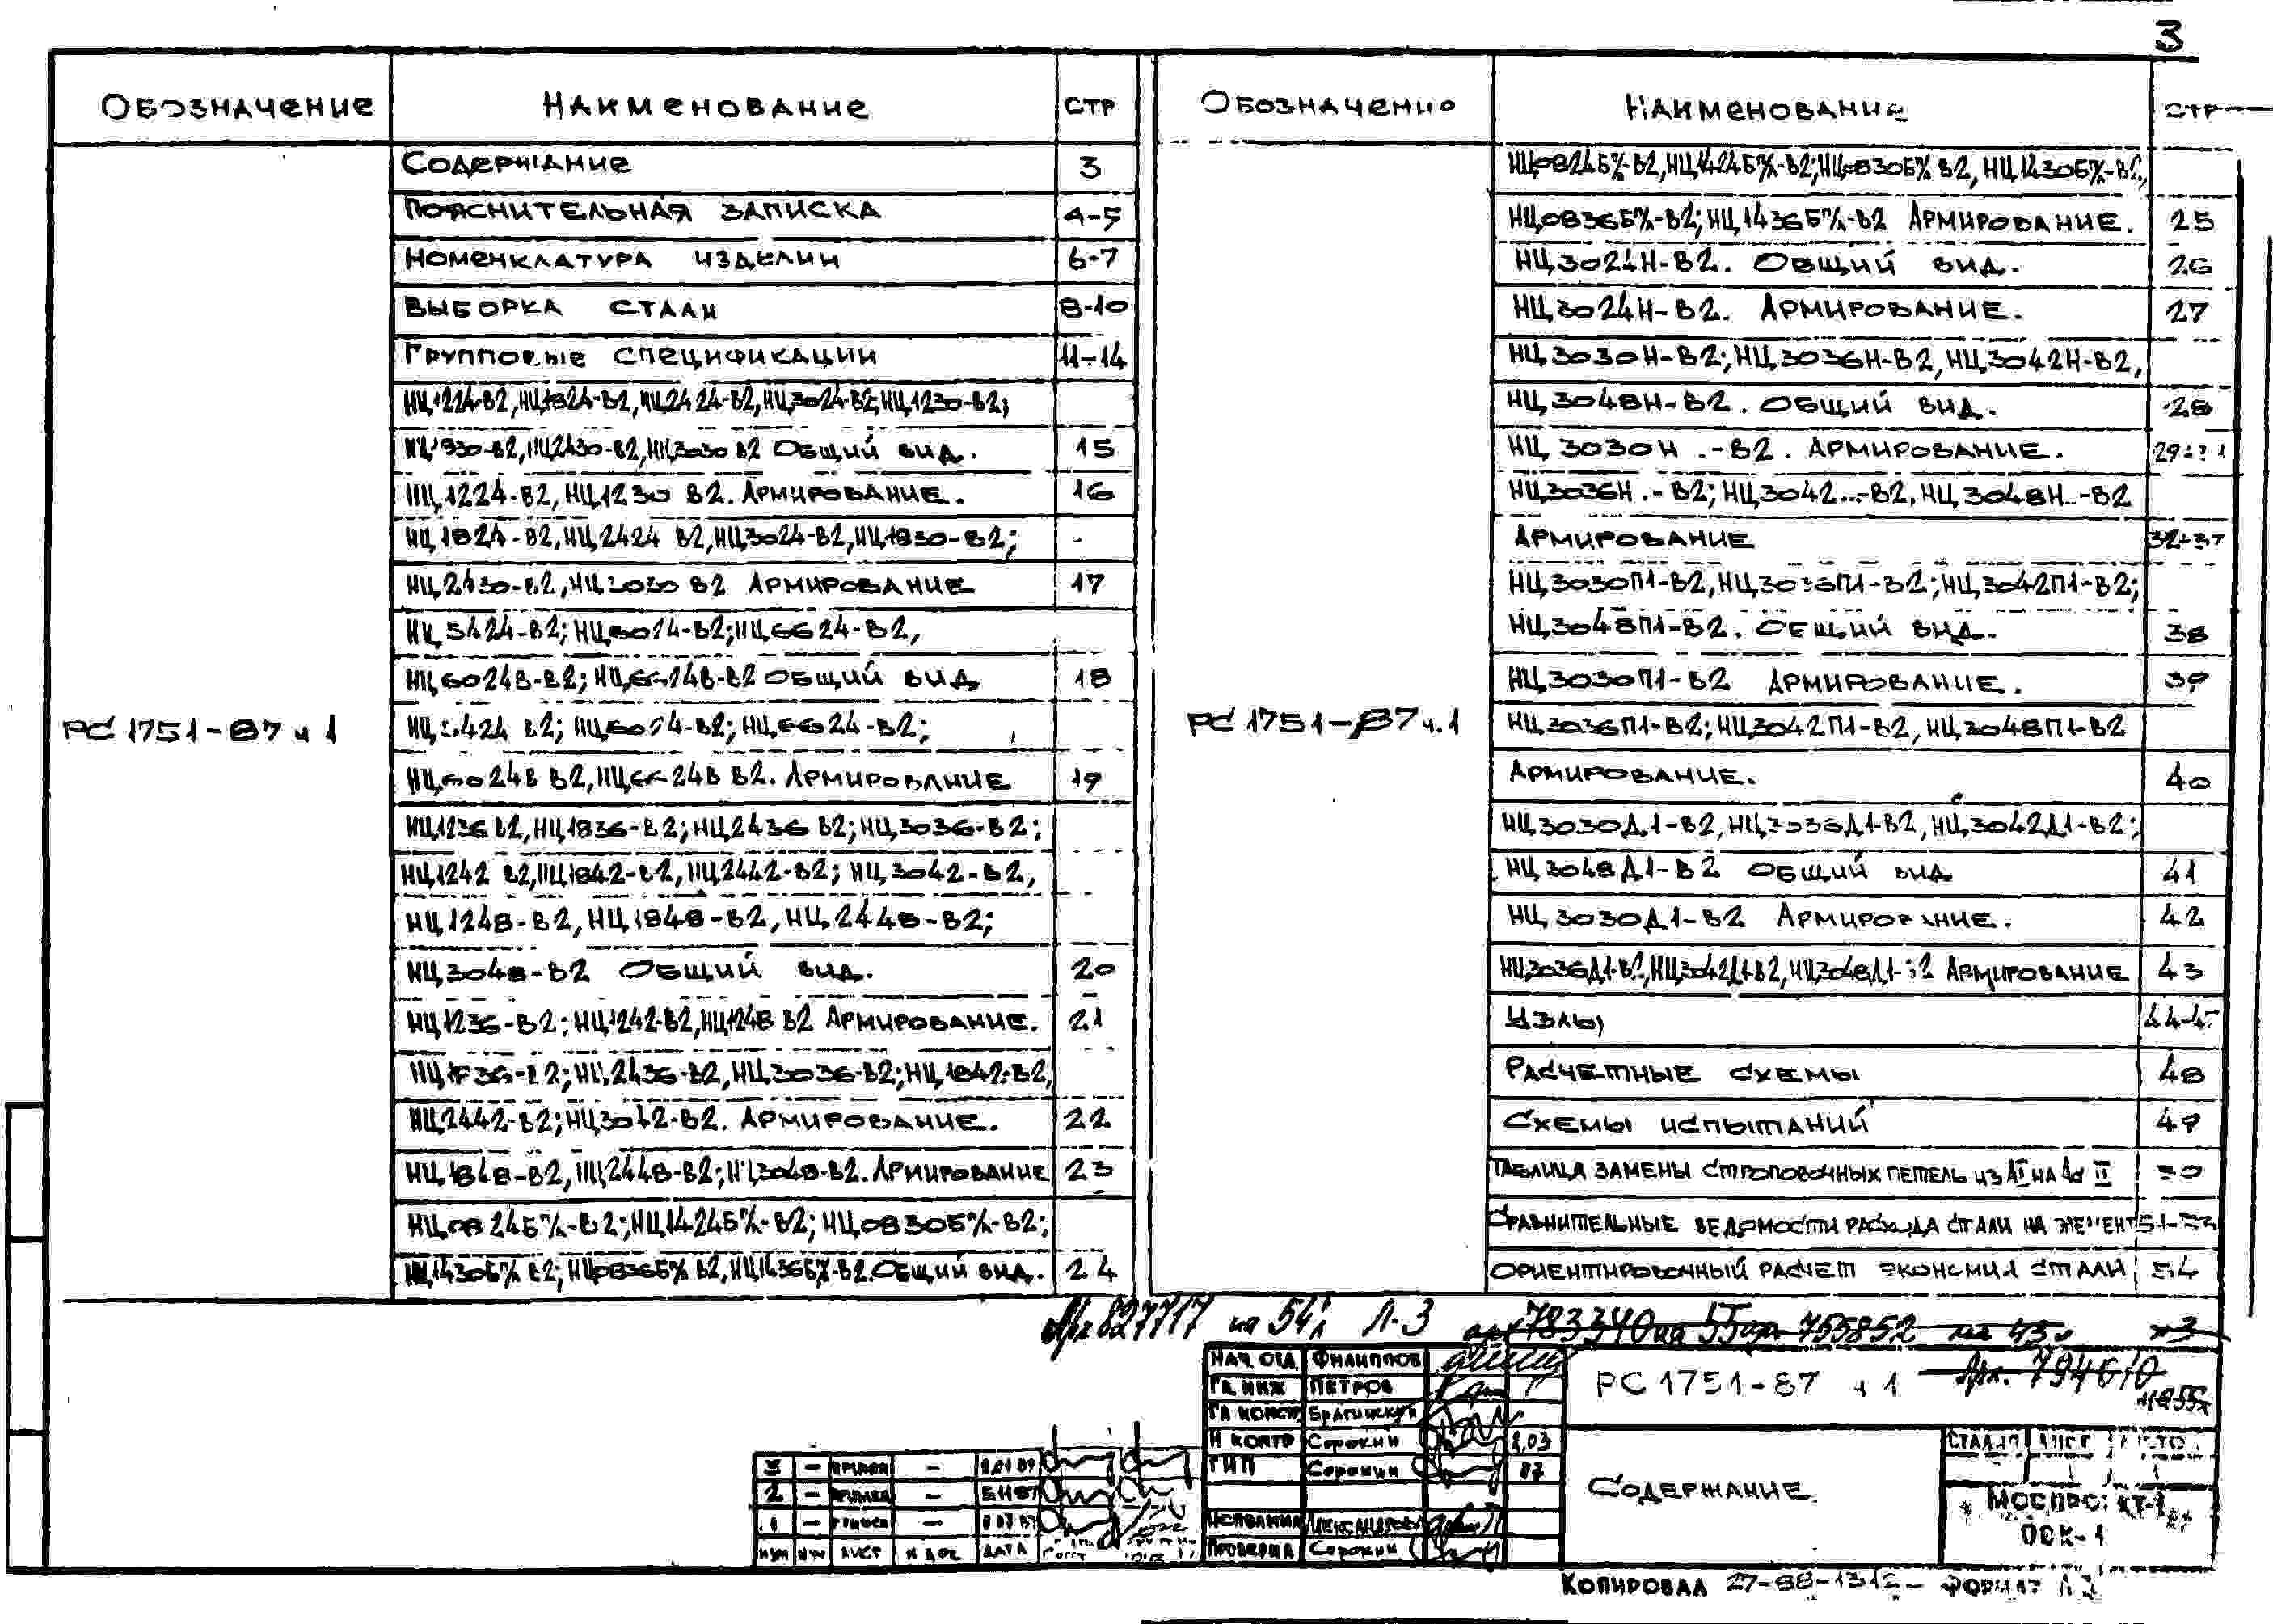 3
Обозначение Наименование стр
Содержание 3
Пояснительная записка 4-5
Номенклатура изделии 6-7
Выборка стали 8-10
Групповые спецификации 11-14
НЦ1224-В2, НЦ1824-В2, НЦ2424-В2, НЦ3024-В2; НЦ1230-В2;
НЦ1830-В2, НЦ2430-В2, НЦ3030 В2 Общий вид. 15
НЦ1224-В2, НЦ1230 В2. Армирование. 16
НЦ1824-В2, НЦ2424 В2, НЦ3024-В2, НЦ1830-В2;
НЦ2430-В2, НЦ3030 В2 Армирование 17
НЦ5424-В2; НЦ6024-В2; НЦ6624-В2,
НЦ6024В-В2; НЦ6624В-В2 Общий вид 18
РС 1751-87 ч 1
НЦ5424 В2; НЦ6024-В2; НЦ6624-В2;
НЦ6024В В2, НЦ6624В В2. Армирование 19
НЦ1236 В2, НЦ1836-В2; НЦ2436 В2; НЦ3036-В2;
НЦ1242 В2, НЦ1842-В2, НЦ2442-В2; НЦ3042-В2,
НЦ1248-В2, НЦ1848-В2, НЦ2448-В2;
НЦ3048-В2 Общий вид. 20
НЦ1236-В2; НЦ1242-В2, НЦ1248 В2 Армирование. 21
НЦ1836-В2; НЦ2436-В2, НЦ3036-В2; НЦ1842-В2,
НЦ2442-В2; НЦ3042-В2. Армирование. 22
НЦ1848-В2, НЦ2448-В2; НЦ3048-В2. Армирование 23
НЦ0824Бп/л-В2; НЦ1424Бп/л-В2; НЦ0830Бп/л-В2;
НЦ1430Бп/л В2; НЦ0836Бп/л В2, НЦ1436Бп/л-В2. Общий вид. 24
Обозначение Наименование стр
НЦ0824Бп/л-В2, НЦ1424Бп/л-В2; НЦ0830Бп/л В2, НЦ1430Бп/л-В2,
НЦ0836Бп/л-В2; НЦ1436Бп/л-В2 Армирование. 25
НЦ3024Н-В2. Общий вид. 26
НЦ3024Н-В2. Армирование. 27
НЦ3030Н-В2; НЦ3036Н-В2, НЦ3042Н-В2,
НЦ3048Н-В2. Общий вид. 28
НЦ 3030Н .-В2. Армирование. 29-31
НЦ3036Н.-В2; НЦ3042...-В2, НЦ3048Н..-В2
Армирование 32-37
НЦ3030П1-В2, НЦ3036П1-В2; НЦ3042П1-В2;
НЦ3048П1-В2. Общий вид. 38
НЦ3030П1-В2 Армирование. 39
РС 1751-87 ч.1
НЦ3036П1-В2; НЦ3042П1-В2, НЦ3048П1-В2
Армирование. 40
НЦ3030Д1-В2, НЦ3036Д1-В2, НЦ3042Д1-В2;
НЦ3048Д1-В2 Общий вид 41
НЦ3030Д1-В2 Армирование. 42
НЦ3036Д1-В2, НЦ3042Д1-В2, НЦ3048Д1-В2 Армирование 43
Узлы 44-47
Расчетные схемы 48
Схемы испытаний 49
Таблица замены строповочных петель из АI на Ас II 50
Сравнительные ведомости расхода стали на элемент 51-53
Ориентировочный расчет экономии стали 54
Арх 827717 на 54л Л-3 арх 783340 на 55 арх 755852 на 45л л3
Нач. отд. Филиппов
Гл инж Петров
Гл констр Брагинский
Н контр Сорокин 2.03
ГИП Сорокин 87
Исполнил Александрова
Проверил Сорокин
РС 1751-87 ч 1 Арх. 794610
на 55л
Содержание
Стадия Лист Листов
Моспроект-1
ОСК-1
3 — —
2 — — 5.11 87
1 — —
Изм Лист N док Дата
Копировал 27-88-1312- Формат А3